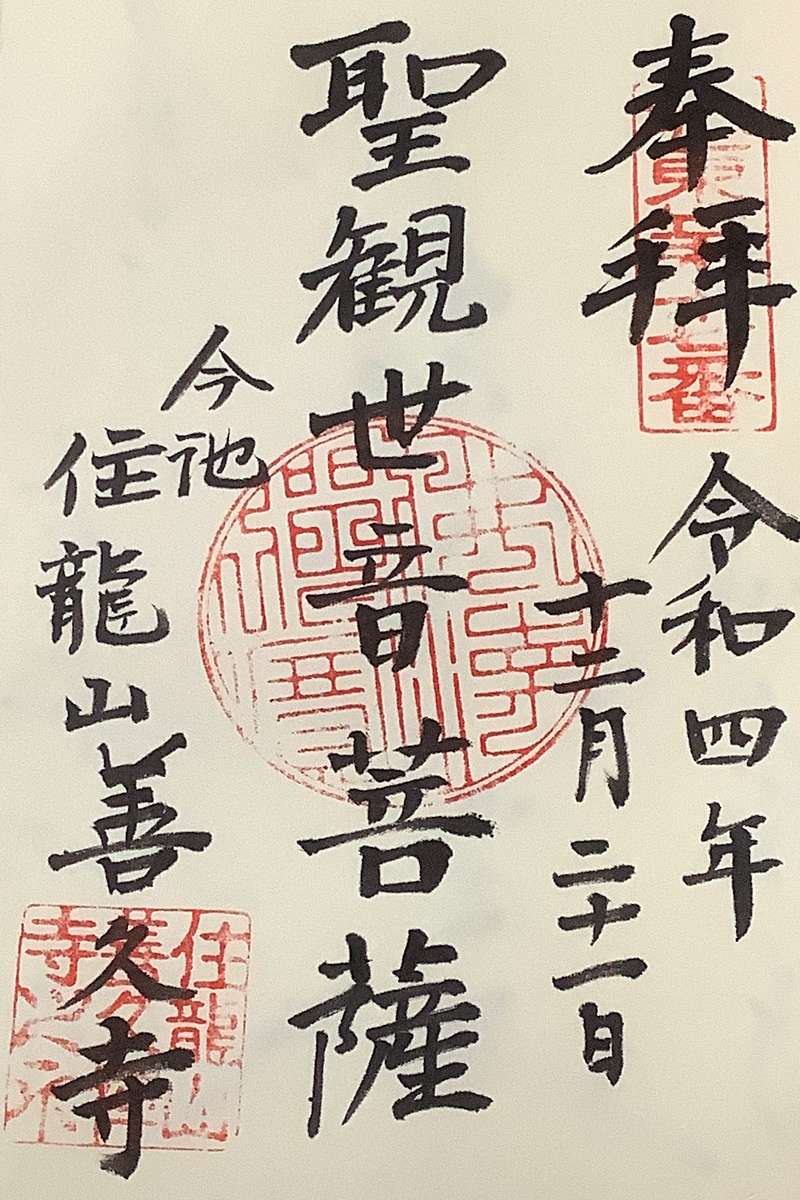 奉拝
令和四年
十二月二十一日
聖観世音菩薩
今池
住龍山善久寺
住龍山
善久寺